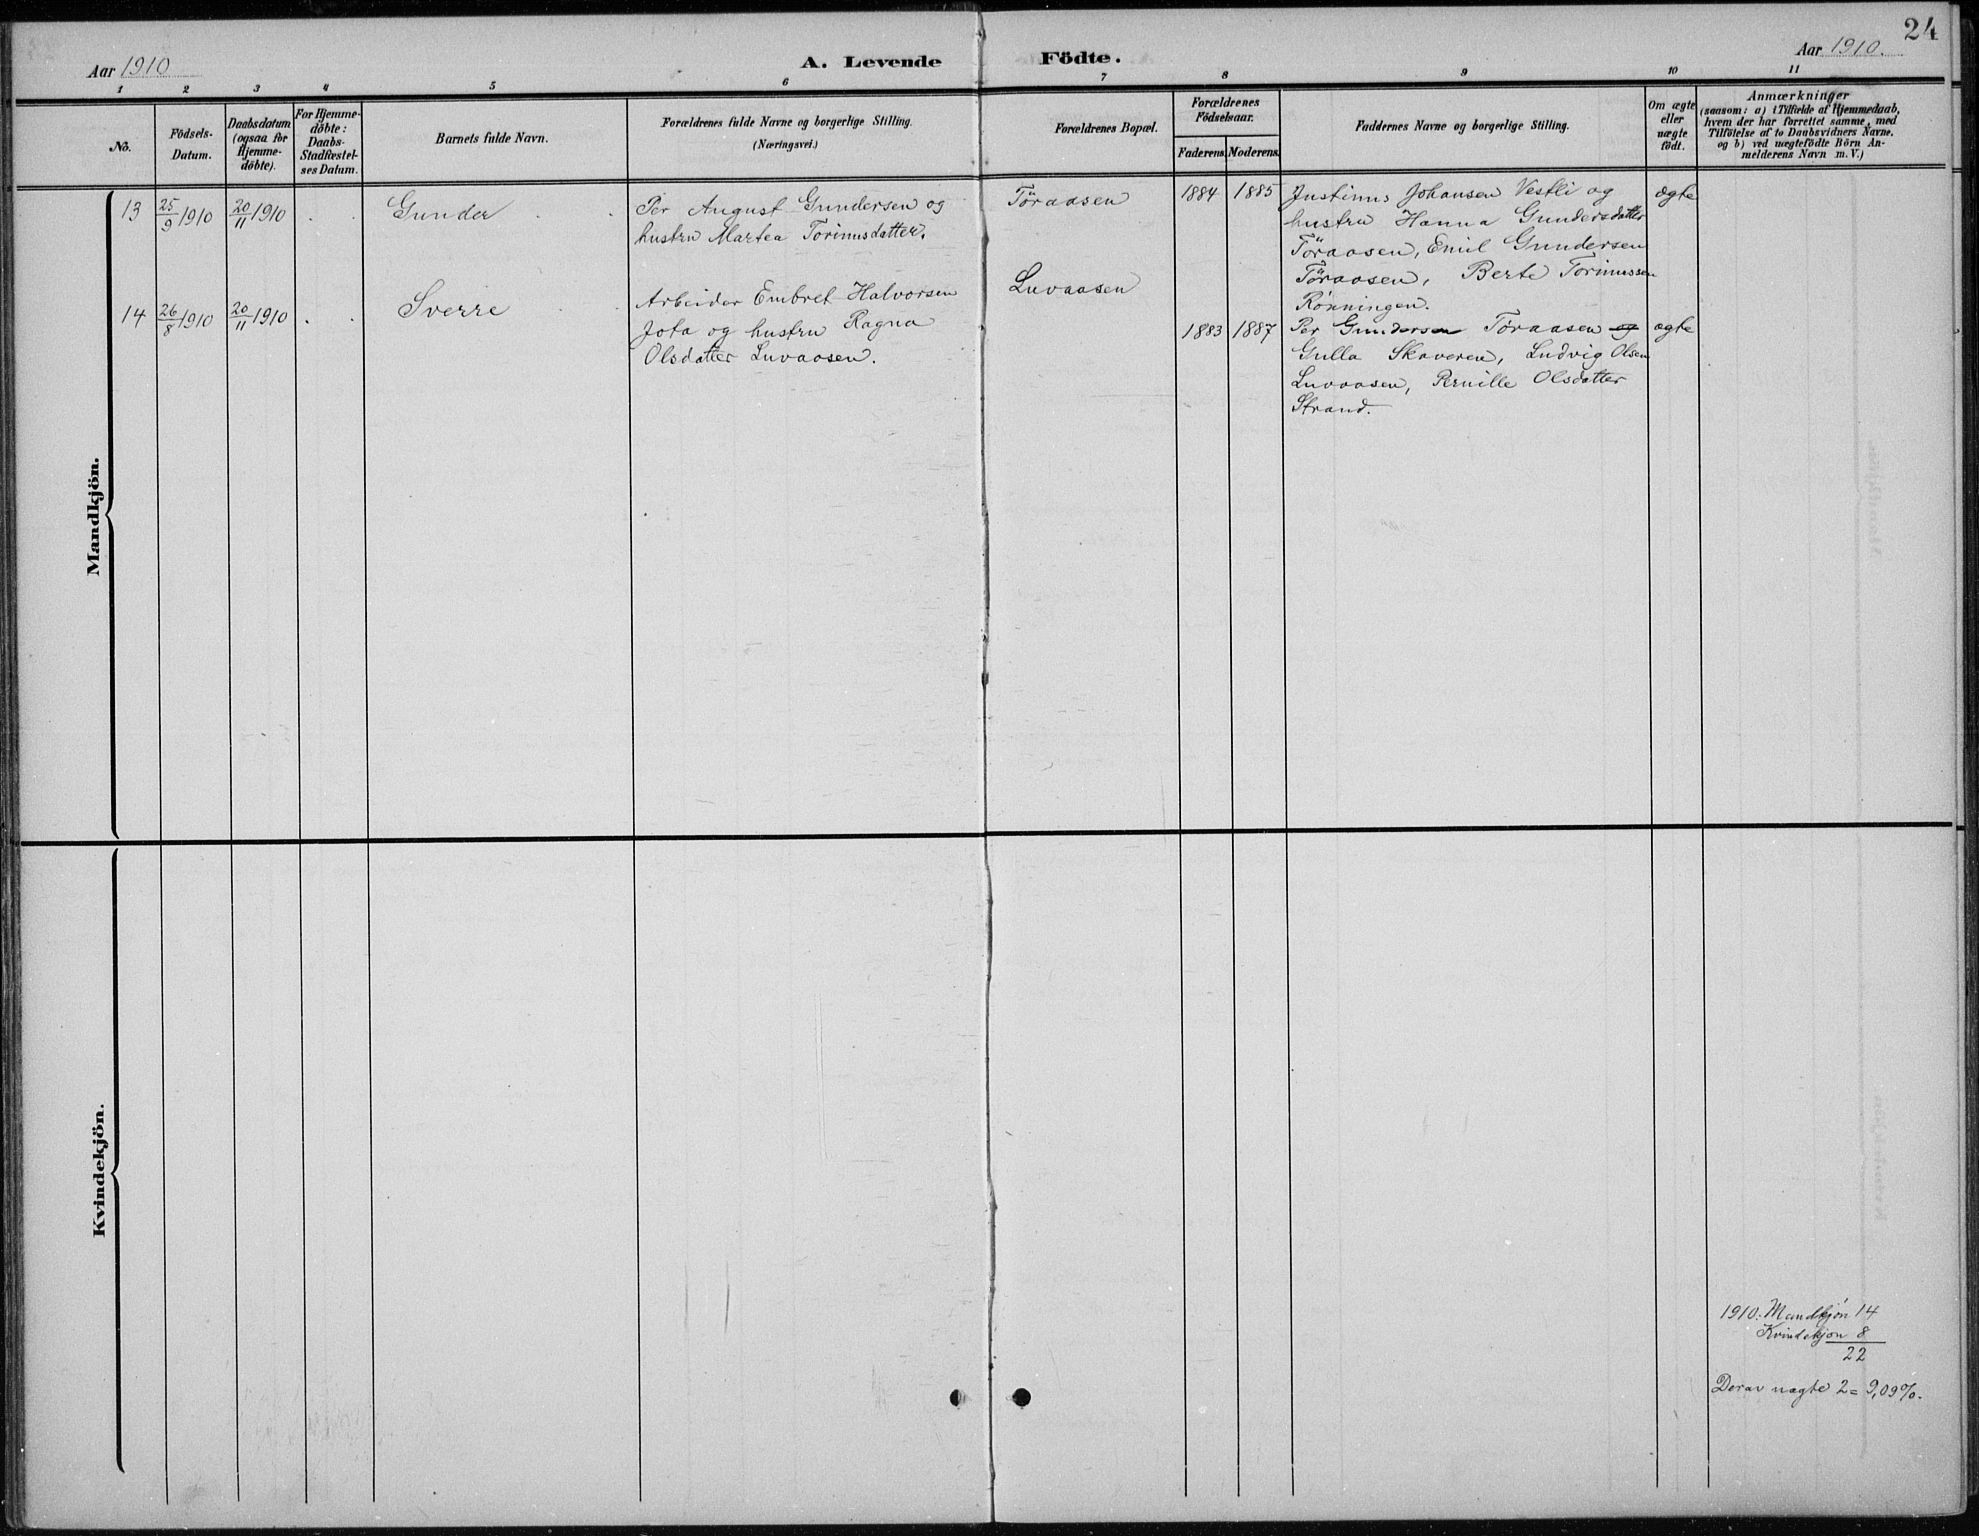 24
Aar 1910
A. Levende Födte.
Aar 1910.
1 2 3 4 5 6 7 8 9 10 11
No.
Födsels-
Datum.
Daabsdatum
(ogsaa for
Hjemme-
döbte).
For Hjemme-
döbte:
Daabs-
Stadfæstel-
ses Datum.
Barnets fulde Navn.
Forældrenes fulde Navne og borgerlige Stilling.
(Næringsvei.)
Forældrenes Bopæl.
Forældrenes
Födselsaar.
Faderens. Moderens.
Faddernes Navne og borgerlige Stilling.
Om ægte
eller
uægte
födt.
Anmærkninger
(saasom: a) i Tilfælde af Hjemmedaab,
hvem der har forrettet samme, med
Tilföielse af to Daabsvidners Navne.
og b) ved uægtefödte Börn An-
melderens Navn m. V.)
Mandkjön.
13
25/9 1910
20/11 1910
Gunder
Per August Gundersen og
hustru Martea Torinusdatter.
Töraasen
1884 1885
Justinus Johansen Vestli og
hustru Hanna Gundersdatter
Töraasen, Emil Gundersen
Töraasen, Berte Torinussen
Rönningen.
ægte
14
26/8 1910
20/11 1910
Sverre
Arbeider Embret Halvorsen
Jota og hustru Ragna
Olsdatter Luvaasen.
Luvaasen
1883 1887
Per Gundersen Töraasen og
Gulla Skaveren, Ludvig Olsen
Luvaasen, Pernille Olsdatter
Strand.
ægte
Kvindekjön.
1910: Mandkjön 14
Kvindekjön 8
22
Derav uægte 2 = 9,09%.